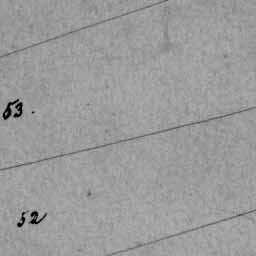 53.
52